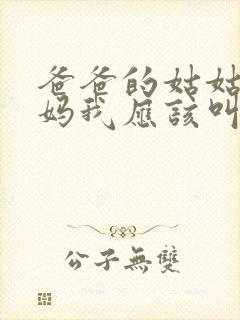 爸爸的姑姑
妈我应该叫
公子無雙